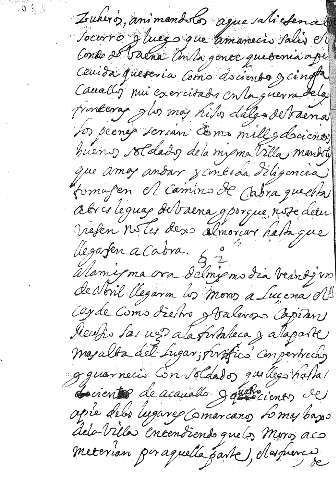 Zuheros, animandolos a que saliesen a
socorro y luego que amanecio salio el
Conde de Vaena con la gente que tenia aper
cevida que seria como docientos y cinqta
Cavallos mui exercitados en la guerra de las
fronteras y los mas hijos dalgo de Vaena
los peones serian como mill y docientos
buenos soldados de la misma Villa mando
que a mas andar y con toda diligencia
tomasen el camino de Cabra que esta
a tres leguas de Vaena y porque no se detu
viesen no les dexo almorcar hasta que
llegasen a Cabra.
§ 2º
A la misma ora del mismo dia veinte y uno
de Abril llegaron los Moros a Lucena el
Alcayde como diestro y valeroso Capitan
recusio sus a la fortaleca y a la parte
mas alta del lugar, fortifico con pertrechos
y guarnecio con soldados que llego hasta
de acavallo y docientos de
apie de los lugares comarcanos lo mas baxo
de la Villa entendiendo que los Moros aco
meterian por aquella parte, el esfuerco,
de